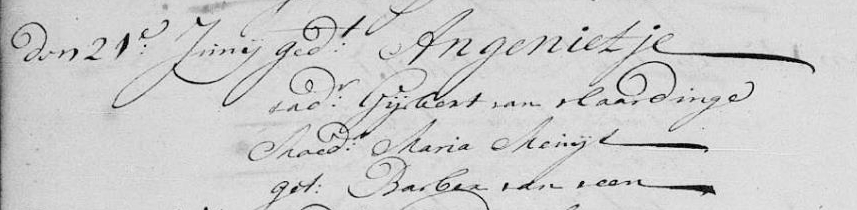 den 21e: Junij ged:t Angenietje
vad:r Gijsbert van vlaardinge
Moed:r Maria Meinst
get: Barber van veen